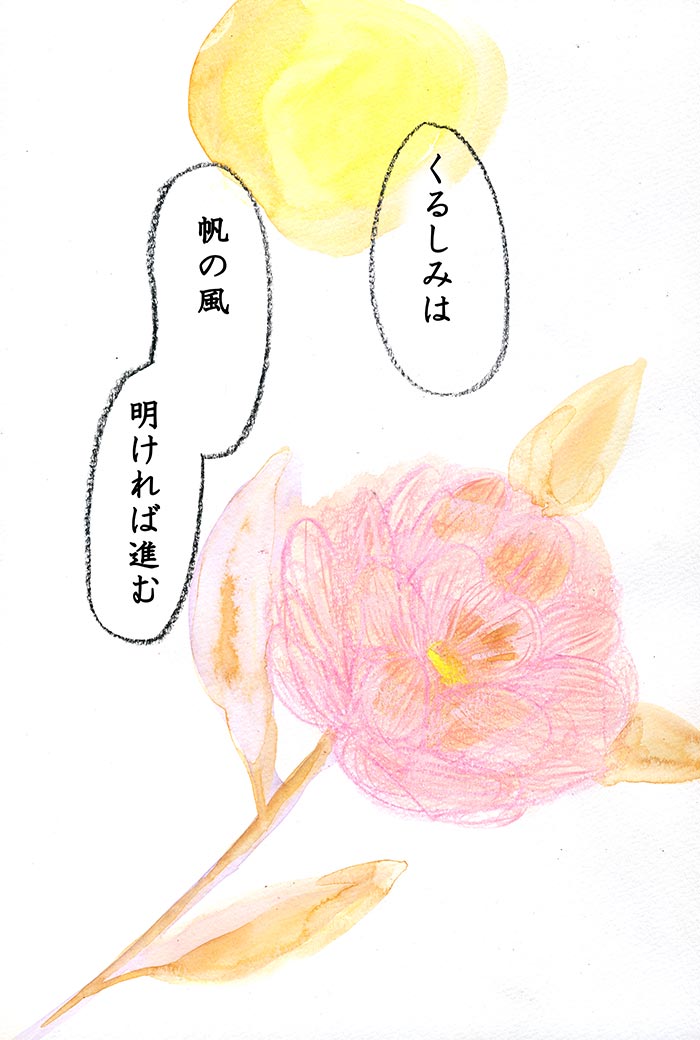 くるしみは
帆の風
明ければ進む